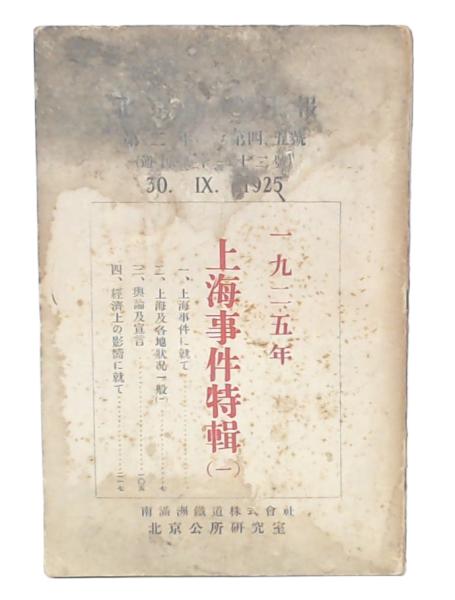 北 報
第三年 第四、五號
30. IX. 1925
一九二五年
上海事件特輯
(一)
一、上海事件に就て
二、上海及各地狀況一般 七
三、輿論及宣言 一〇五
四、經濟上の影響に就て 二一七
南滿洲鐵道株式會社
北京公所研究室